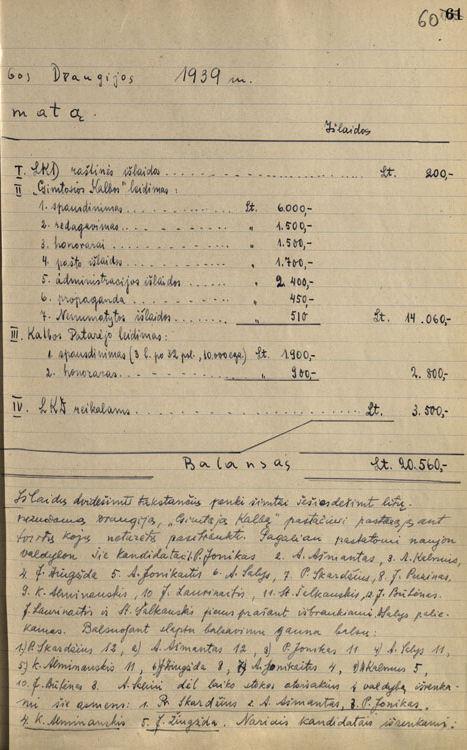 60 61
bos Draugijos 1939 m.
matą.
Išlaidos
I. LKD raštinės išlaidos Lt. 200,-
II "Gimtosios Kalbos" leidimas:
1. spausdinimas Lt. 6.000,-
2. redagavimas " 1.500,-
3. honorarai " 1.500,-
4. pašto išlaidos " 1.700,-
5. administracijos išlaidos " 2 400,-
6. propaganda " 450,-
7. Nenumatytos išlaidos " 510 Lt. 14.060,-
III Kalbos Patarėjo leidimas:
1. spausdinimas (3 l. po 32 psl., 10.000 egz.) Lt. 1900,-
2. honoraras " 900,- 2.800,-
IV. LKD reikalams Lt. 3.500,-
Balansas Lt. 20.560,-
Išlaidų dvidešimts tūkstančių penki šimtai šešiasdešimt litų.
draugiją, "Gimtąją Kalbą"
Pagaliau pastatomi naujon
valdybon šie kandidatai: P. Jonikas 2. A. Ašmantas, 3. A. Kalnius,
4. J. Žiugžda 5. A. Jonikaitis 6. A. Salys, 7. P. Skardžius, 8. J. Puzinas.
9. K. Alminauskis, 10 J. Laurinaitis, 11. St. Šalkauskis, J. Būtėnas.
J. Laurinaitis ir St. Šalkauskis prašant išbraukiami.
Balsuojant slaptu balsavimu gauna balsų:
1) P. Skardžius 13, 2) A. Ašmantas 12, 3) P. Jonikas 11 4) A. Salys 11,
5) K. Alminauskis 11, 6) J. Žiugžda 8, 7) A. Jonikaitis 4, 8) A. Kalnius 5,
10. J. Būtėnas 3. A. Saliui dėl laiko stokos atsisakius į valdybą išrenka-
mi šie asmens: 1. Pr. Skardžius 2. A. Ašmantas, 3. P. Jonikas.
4. K. Alminauskis 5. J. Žiugžda. Nariais kandidatais išrenkami: